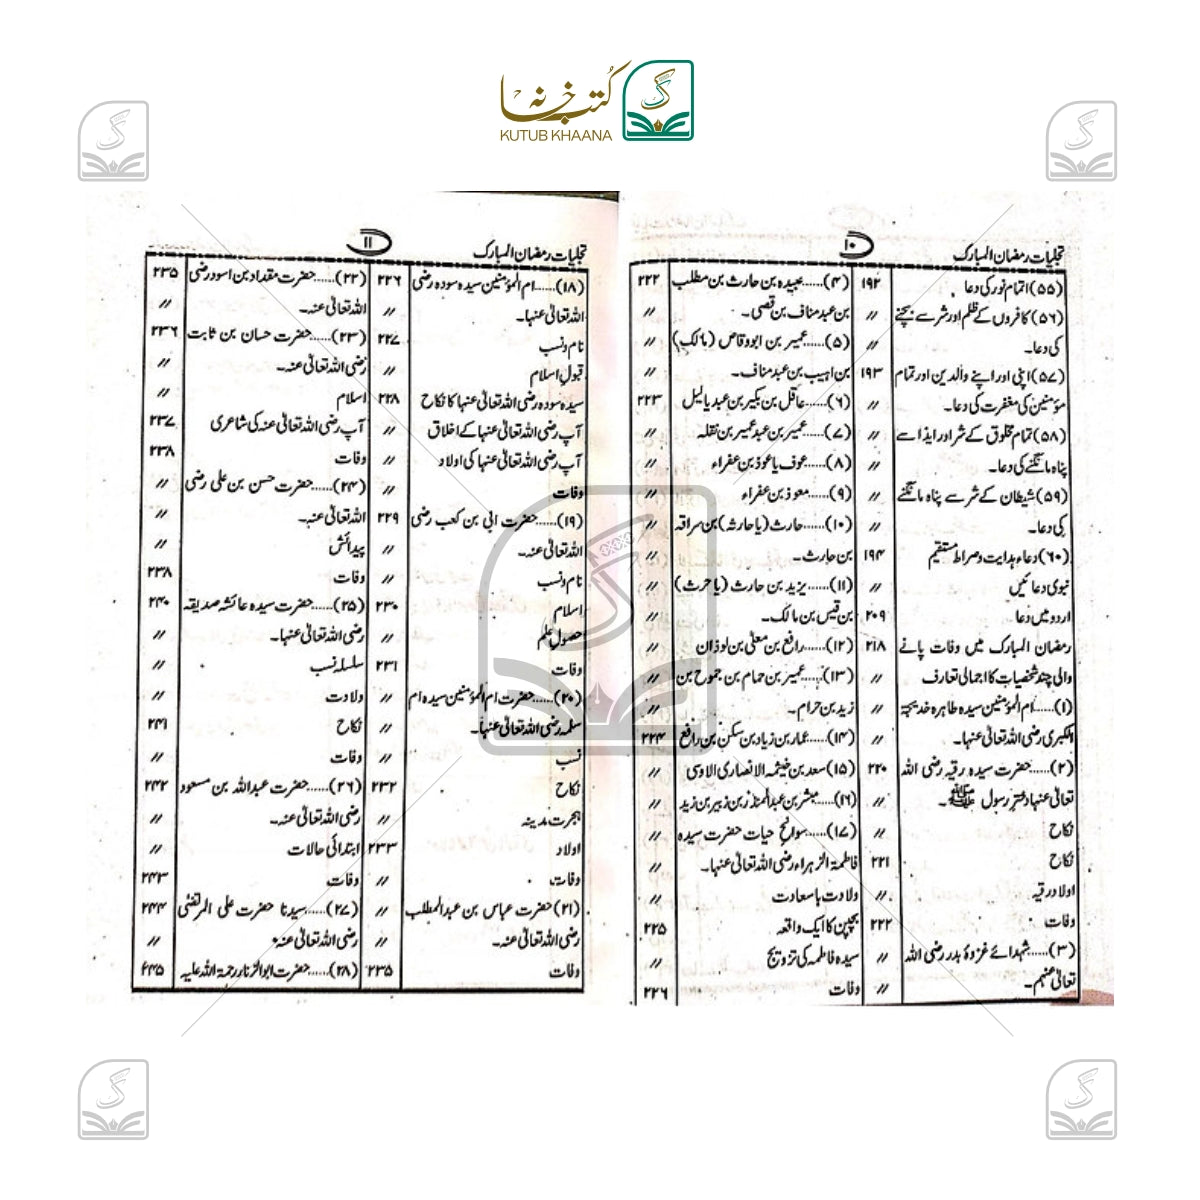 کتب خانہ
KUTUB KHAANA
تجلیات رمضان المبارک
۱۰
(۵۵) اتمام نور کی دعا ۱۹۲
(۵۶) کافروں کے ظلم اور شر سے بچنے //
کی دعا۔ //
(۵۷) اپنی اور اپنے والدین اور تمام ۱۹۳
مؤمنین کی مغفرت کی دعا۔ //
(۵۸) تمام مخلوق کے شر اور ایذا سے //
پناہ مانگنے کی دعا۔ //
(۵۹) شیطان کے شر سے پناہ مانگنے //
کی دعا۔ //
(۶۰) دعاء ہدایت و صراط مستقیم ۱۹۴
نبوی دعائیں //
اردو میں دعا ۲۰۹
رمضان المبارک میں وفات پانے ۲۱۸
والی چند شخصیات کا اجمالی تعارف //
(۱)......ام المؤمنین سیدہ طاہرہ خدیجۃ //
الکبری رضی اللہ تعالیٰ عنہا۔ //
(۲)......حضرت سیدہ رقیہ رضی اللہ ۲۲۰
تعالیٰ عنہا دختر رسول ﷺ۔ //
نکاح //
نکاح ۲۲۱
اولاد رقیہ //
وفات ۲۲۲
(۳)......شہدائے غزوۂ بدر رضی اللہ //
تعالیٰ عنہم۔ //
(۴)......عبیدہ بن حارث بن مطلب ۲۲۲
بن عبد مناف بن قصی۔ //
(۵)......عمیر بن ابو وقاص (مالک) //
بن اہیب بن عبد مناف۔ //
(۶)......عاقل بن بکیر بن عبد یالیل ۲۲۳
(۷)......عمیر بن عبد عمیر بن نضلہ //
(۸)......عوف یا عوذ بن عفراء //
(۹)......معوذ بن عفراء //
(۱۰)......حارث (یا حارثہ) بن سراقہ //
بن حارث۔ //
(۱۱)......یزید بن حارث (یا حرث) //
بن قیس بن مالک۔ //
(۱۲)......رافع بن معلیٰ بن لوذان //
(۱۳)......عمیر بن حمام بن جموح بن //
زید بن حرام۔ //
(۱۴)......عمار بن زیاد بن سکن بن رافع ۲۲۴
(۱۵) سعد بن خیثمہ الانصاری الاوسی //
(۱۶)......مبشر بن عبد المنذر بن زبیر بن زید //
(۱۷)......سوانح حیات حضرت سیدہ //
فاطمۃ الزہراء رضی اللہ تعالیٰ عنہا۔ //
ولادت باسعادت //
بچپن کا ایک واقعہ ۲۲۵
سیدہ فاطمہ کی تزویج //
وفات ۲۲۶
تجلیات رمضان المبارک
۱۱
(۱۸)......ام المؤمنین سیدہ سودہ رضی ۲۲۶
اللہ تعالیٰ عنہا۔ //
نام و نسب ۲۲۷
قبول اسلام //
سیدہ سودہ رضی اللہ تعالیٰ عنہا کا نکاح ۲۲۸
آپ رضی اللہ تعالیٰ عنہا کے اخلاق //
آپ رضی اللہ تعالیٰ عنہا کی اولاد //
وفات //
(۱۹)......حضرت ابی بن کعب رضی ۲۲۹
اللہ تعالیٰ عنہ۔ //
نام و نسب //
اسلام ۲۳۰
حصول علم //
وفات ۲۳۱
(۲۰)......حضرت ام المؤمنین سیدہ ام //
سلمہ رضی اللہ تعالیٰ عنہا۔ //
نسب //
نکاح ۲۳۲
ہجرت مدینہ //
اولاد ۲۳۳
وفات //
(۲۱) حضرت عباس بن عبد المطلب //
رضی اللہ تعالیٰ عنہ۔ //
وفات ۲۳۵
(۲۲)......حضرت مقداد بن اسود رضی ۲۳۵
اللہ تعالیٰ عنہ۔ //
(۲۳)......حضرت حسان بن ثابت ۲۳۶
رضی اللہ تعالیٰ عنہ۔ //
اسلام //
آپ رضی اللہ تعالیٰ عنہ کی شاعری ۲۳۷
وفات ۲۳۸
(۲۴)......حضرت حسن بن علی رضی //
اللہ تعالیٰ عنہ۔ //
پیدائش //
وفات ۲۳۸
(۲۵)......حضرت سیدہ عائشہ صدیقہ ۲۴۰
رضی اللہ تعالیٰ عنہا۔ //
سلسلہ نسب //
ولادت //
نکاح ۲۴۱
وفات //
(۲۶)......حضرت عبداللہ بن مسعود ۲۴۲
رضی اللہ تعالیٰ عنہ۔ //
ابتدائی حالات //
وفات ۲۴۳
(۲۷)......سیدنا حضرت علی المرتضیٰ ۲۴۴
رضی اللہ تعالیٰ عنہ //
(۲۸)......حضرت ابوالزناد رحمۃ اللہ علیہ ۲۴۵